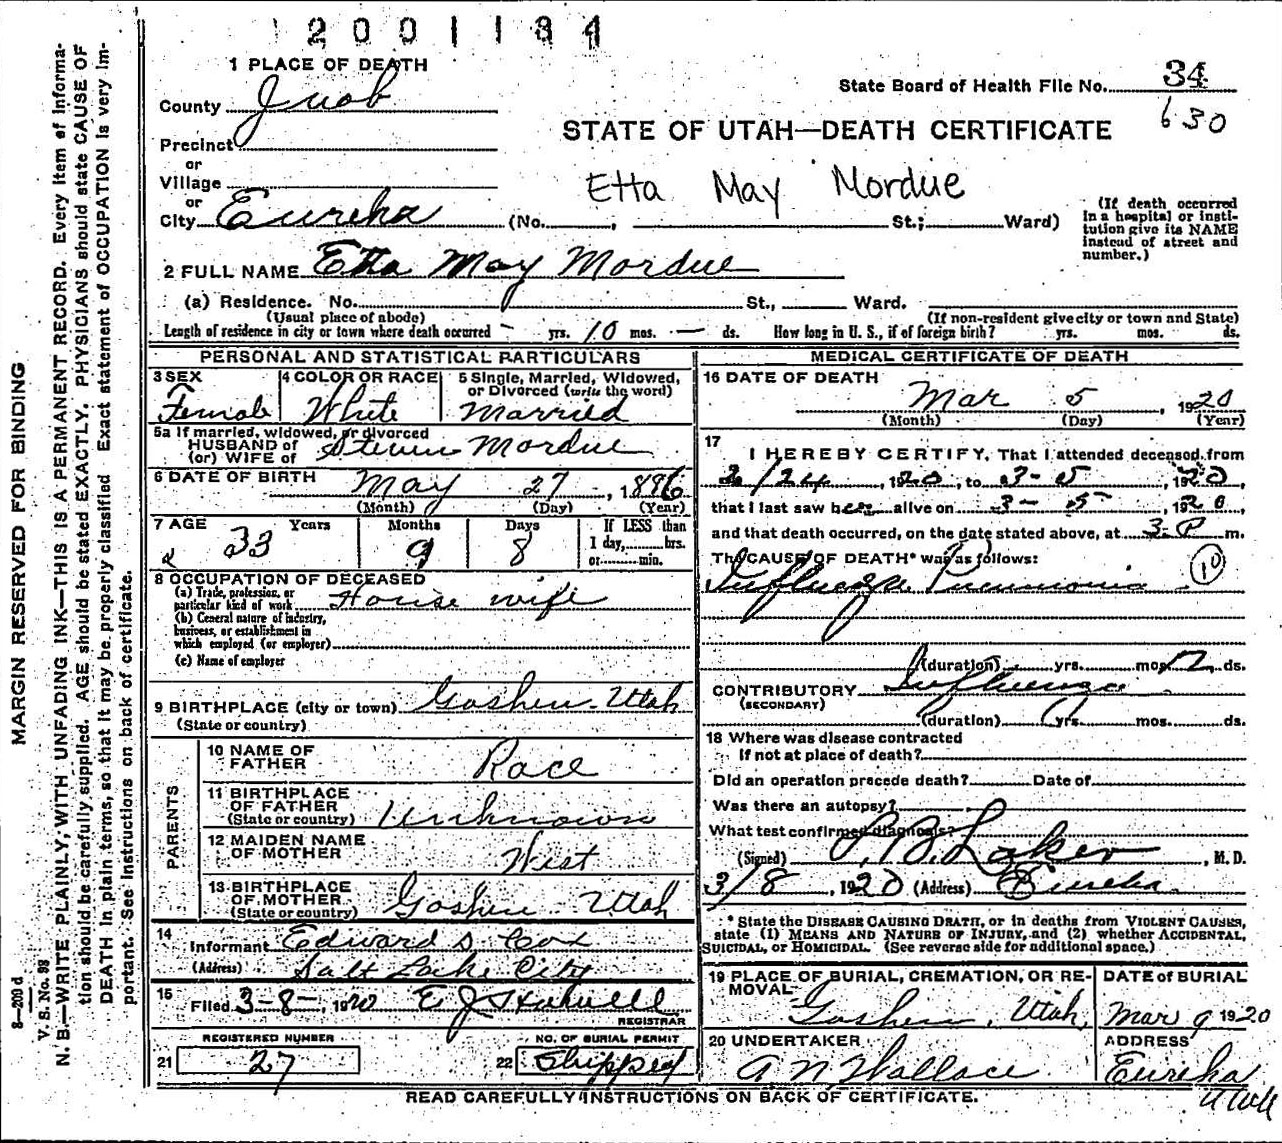 2001134
1 PLACE OF DEATH
State Board of Health File No. 34
630
County Juab
STATE OF UTAH—DEATH CERTIFICATE
Precinct
or
Village
Etta May Mordue
or
City Eureka (No. , St.; Ward)
(If death occurred in a hospital or insti-
tution give its NAME
instead of street and
number.)
2 FULL NAME Etta May Mordue
(a) Residence. No. St., Ward.
(Usual place of abode) (If non-resident give city or town and State)
Length of residence in city or town where death occurred - yrs. 10 mos. — ds. How long in U. S., if of foreign birth? yrs. mos. ds.
PERSONAL AND STATISTICAL PARTICULARS
3 SEX
Female
4 COLOR OR RACE
White
5 Single, Married, Widowed,
or Divorced (write the word)
Married
5a If married, widowed, or divorced
HUSBAND of
(or) WIFE of Steven Mordue
6 DATE OF BIRTH May 27, 1896
(Month) (Day) (Year)
7 AGE 33 Years 9 Months 8 Days
If LESS than
1 day, hrs.
or min.
8 OCCUPATION OF DECEASED
(a) Trade, profession, or
particular kind of work House wife
(b) General nature of industry,
business, or establishment in
which employed (or employer)
(c) Name of employer
9 BIRTHPLACE (city or town) Goshen Utah
(State or country)
PARENTS
10 NAME OF
FATHER Race
11 BIRTHPLACE
OF FATHER
(State or country) Unknown
12 MAIDEN NAME
OF MOTHER West
13 BIRTHPLACE
OF MOTHER
(State or country) Goshen Utah
14
Informant Edward S Cox
(Address) Salt Lake City
15
Filed 3-8-, 1920 E J
REGISTRAR
REGISTERED NUMBER
21 27
NO. OF BURIAL PERMIT
22 Shipped
MEDICAL CERTIFICATE OF DEATH
16 DATE OF DEATH
Mar 5, 1920
(Month) (Day) (Year)
17
I HEREBY CERTIFY, That I attended deceased from
2/24, 1920, to 3-5, 1920,
that I last saw her alive on 3-5, 1920,
and that death occurred, on the date stated above, at 3 P m.
The CAUSE OF DEATH* was as follows:
Influenza Pneumonia 10
(duration) yrs. mos. 12 ds.
CONTRIBUTORY Influenza
(SECONDARY)
(duration) yrs. mos. ds.
18 Where was disease contracted
If not at place of death?
Did an operation precede death? Date of
Was there an autopsy?
What test confirmed diagnosis?
(Signed) Laker, M. D.
3/8, 1920 (Address) Eureka
* State the DISEASE CAUSING DEATH, or in deaths from VIOLENT CAUSES,
state (1) MEANS AND NATURE OF INJURY, and (2) whether ACCIDENTAL,
SUICIDAL, or HOMICIDAL. (See reverse side for additional space.)
19 PLACE OF BURIAL, CREMATION, OR RE-
MOVAL
Goshen, Utah,
DATE OF BURIAL
Mar 9 1920
20 UNDERTAKER
A N Wallace
ADDRESS
Eureka
Utah
READ CAREFULLY INSTRUCTIONS ON BACK OF CERTIFICATE.
MARGIN RESERVED FOR BINDING
8—200 d
V. S. No. 98
N. B.—WRITE PLAINLY, WITH UNFADING INK—THIS IS A PERMANENT RECORD. Every item of informa-
tion should be carefully supplied. AGE should be stated EXACTLY. PHYSICIANS should state CAUSE OF
DEATH in plain terms, so that it may be properly classified. Exact statement of OCCUPATION is very im-
portant. See instructions on back of certificate.